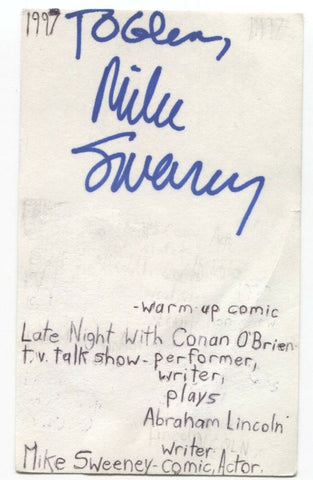 1997
To Glen,
Mike
Sweeney
-warm-up comic
Late Night With Conan O'Brien-
t.v. talk show-performer,
writer,
plays
Abraham Lincoln
writer
Mike Sweeney-comic, Actor.